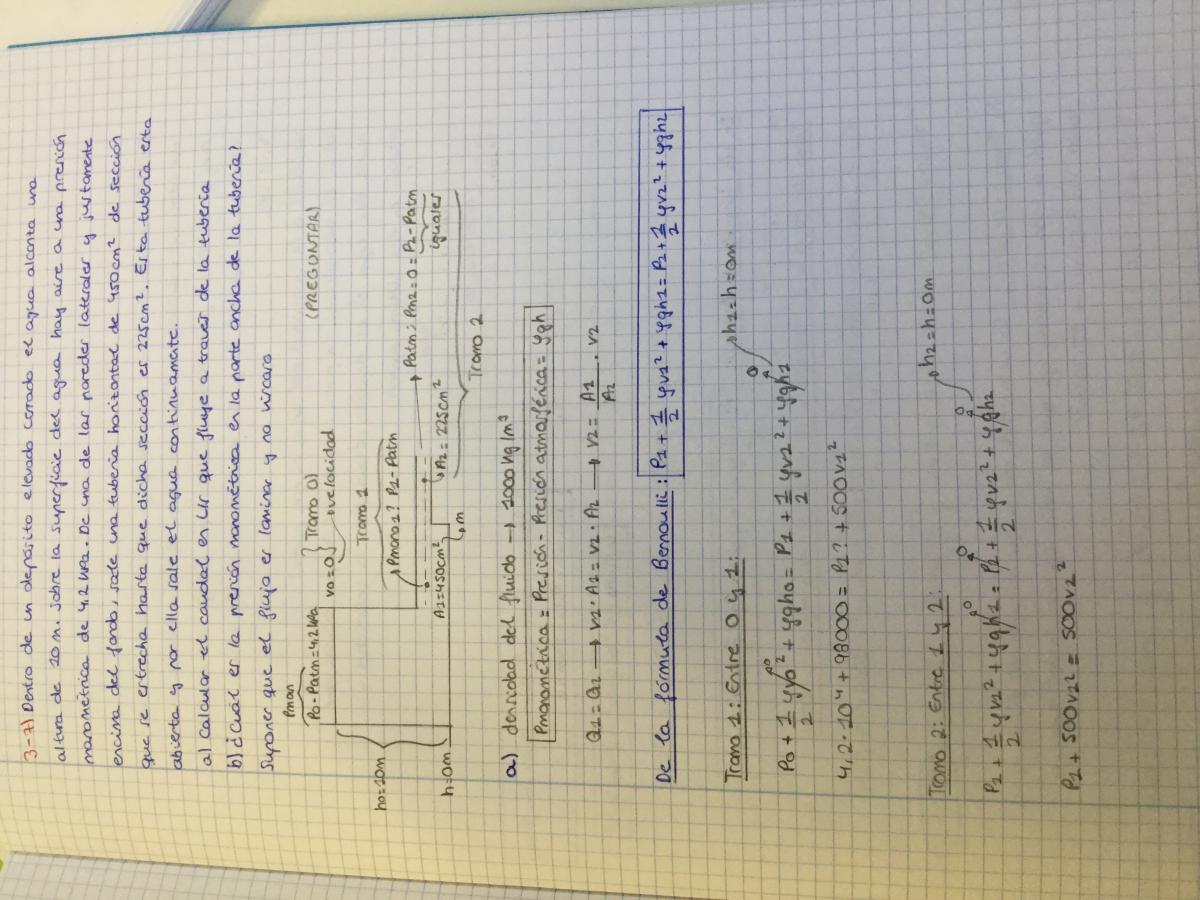 3-7) Dentro de un depósito elevado cerrado el agua alcanta una
altura de 10 m. sobre la superficie del agua hay aire a una presión
manométrica de 4.2 kPa. De una de las paredes laterales y justamente
encima del fondo, sale una tubería horizontal de 450cm² de sección
que se estrecha hasta que dicha sección es 225cm². Esta tubería esta
abierta y por ella sale el agua continuamente.
a) Calcular el caudal en L/s que fluye a traves de la tuberia
b) ¿Cual es la presión manométrica en la parte ancha de la tuberia?
Suponer que el flujo es laminar y no viscaro
(PREGUNTAR)
Pman
P0-Patm=4,2 kPa
v0=0} Tramo 0)
velocidad
Tramo 1
Pmano1? P1-Patm
Patm; Pm2=0=P2-Patm
iguales
h0=10m
A1=450cm²
A2=225cm²
m
h=0m
Tramo 2
a) densidad del fluido → 1000 kg/m³
Pmanométrica = Presión - Presión atmosférica = ρgh
Q1=Q2 → v1·A1=v2·A2 → v2= A1/A2 · v1
De la fórmula de Bernoulli: P1+1/2 ρv1²+ρgh1=P2+1/2 ρv2²+ρgh2
Tramo 1: Entre 0 y 1:
h1=h=0m
P0+1/2 ρv0²+ρgh0=P1+1/2 ρv1²+ρgh1
4,2·10⁴+98000=P1?+500v1²
Tramo 2: Entre 1 y 2:
h2=h=0m
P1+1/2 ρv1²+ρgh1=P2+1/2 ρv2²+ρgh2
P1+500v1²=500v2²